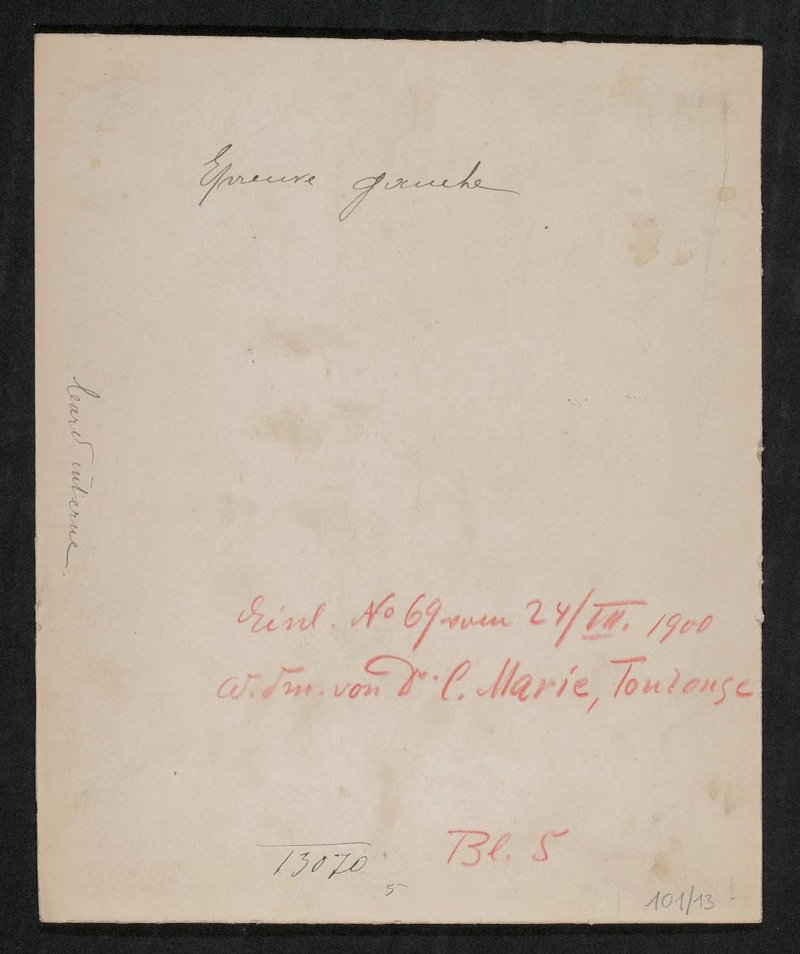 Epreuve gauche
Écard interne.
Einl. No 69 vom 24/VII. 1900
Wdm. von Dr. C. Marie, Toulouse
13070
Bl. 5
5
101/13